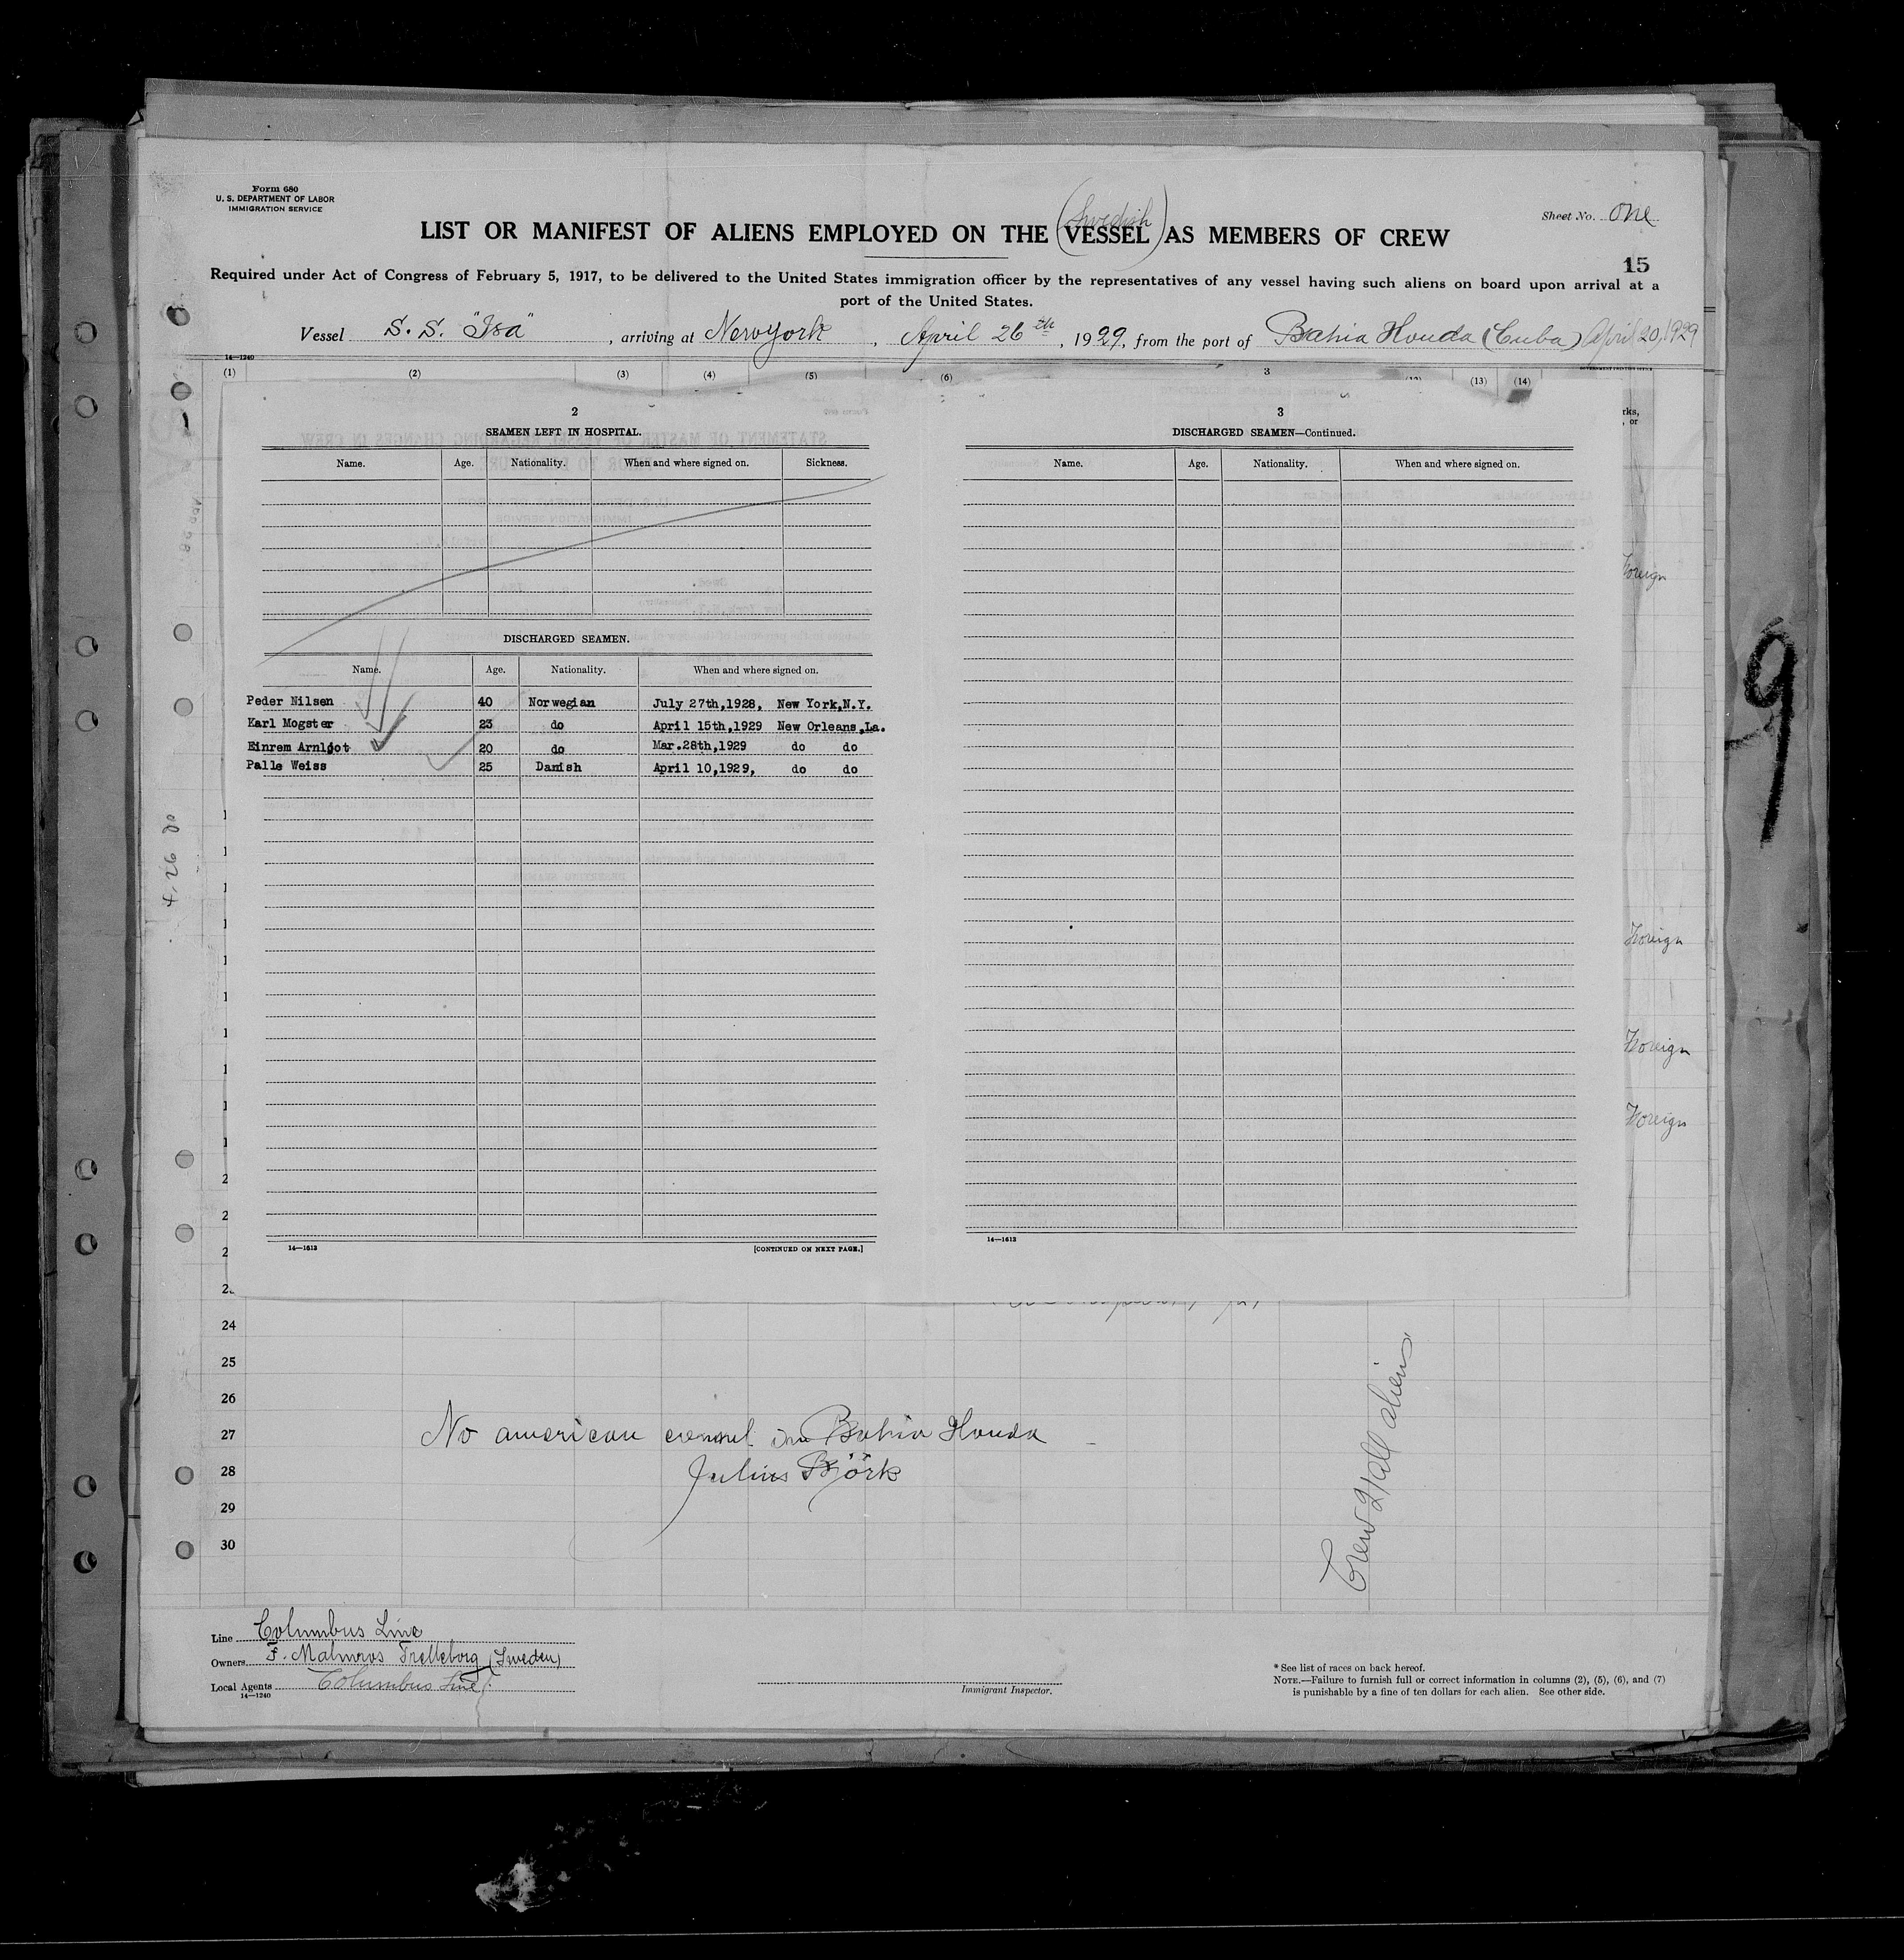 Form 680
U. S. DEPARTMENT OF LABOR
IMMIGRATION SERVICE
Sheet No. One
(Swedish)
LIST OR MANIFEST OF ALIENS EMPLOYED ON THE VESSEL AS MEMBERS OF CREW
15
Required under Act of Congress of February 5, 1917, to be delivered to the United States immigration officer by the representatives of any vessel having such aliens on board upon arrival at a
port of the United States.
Vessel S. S. "Isa", arriving at New York, April 26th, 1929, from the port of Bahia Honda (Cuba) April 20, 1929
14—1240
(1) (2) (3) (4) (5) (6) 3 (13) (14)
2
SEAMEN LEFT IN HOSPITAL.
Name. Age. Nationality. When and where signed on. Sickness.
DISCHARGED SEAMEN.
Name. Age. Nationality. When and where signed on.
Peder Nilsen 40 Norwegian July 27th,1928, New York,N.Y.
Karl Mogster 23 do April 15th,1929 New Orleans,La.
Einrem Arnljot 20 do Mar.28th,1929 do do
Palle Weiss 25 Danish April 10,1929, do do
14—1613 [CONTINUED ON NEXT PAGE.]
3
DISCHARGED SEAMEN—Continued.
Name. Age. Nationality. When and where signed on.
14—1613
rks,
, or
Foreign
Foreign
Foreign
Foreign
9
4/26
24
25
26
27
28
29
30
No american consul in Bahia Honda
Julius Björk
Crew 21 all aliens
Line Columbus Line
Owners F. Malmros Trelleborg (Sweden)
Local Agents Columbus Line
14—1240
Immigrant Inspector.
* See list of races on back hereof.
NOTE.—Failure to furnish full or correct information in columns (2), (5), (6), and (7)
is punishable by a fine of ten dollars for each alien. See other side.